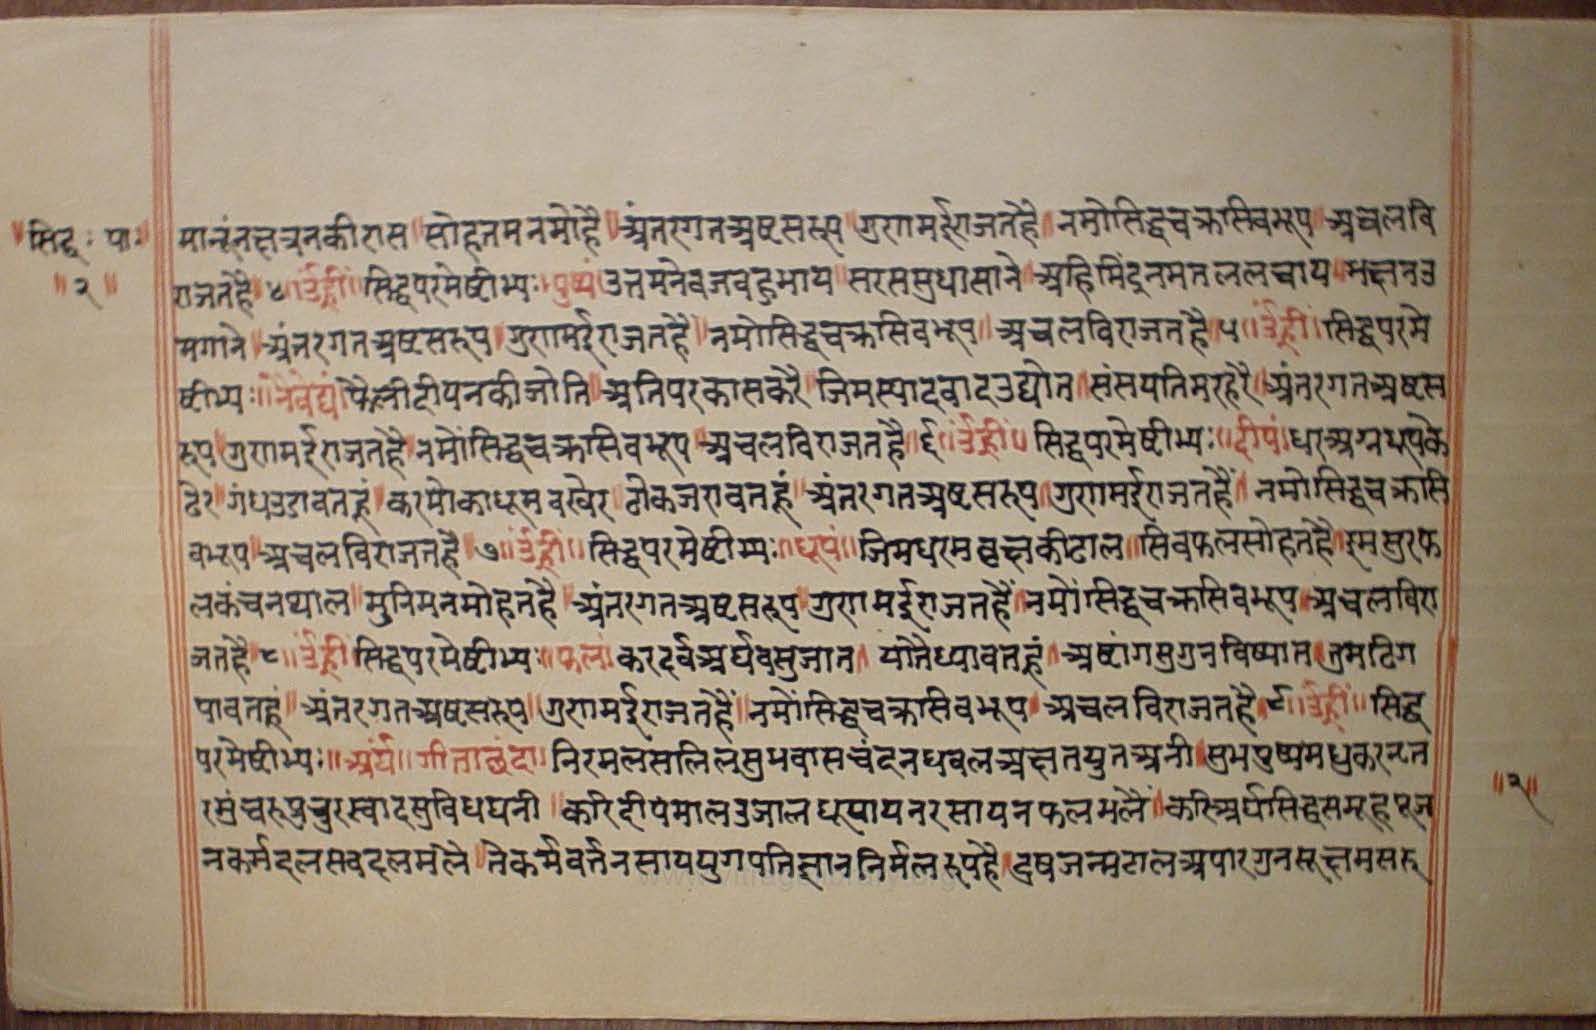 ॥सिद्ध॰ पा॰॥
॥२॥
मानंूनत्तत्रनकीरास॥सोहतमनमोहै॥अंतरगतअष्टसरूप॥गुरागमईराजतहै॥नमोसिद्धचक्रसिवभूप॥अचलवि
राजतहै॥४॥उंह्रीं॥सिद्धपरमेष्टीभ्यः॥पुष्पं॥उत्तमनेवजवहुभाय॥सरससुधासाने॥अहिमिंद्रनमतललचाय॥भत्तनउ
मगाने॥अंतरगतअष्टसरूप॥गुरागमईराजतहै॥नमोसिद्धचक्रसिवभूप॥अचलविराजतहै॥५॥उंह्रीं॥सिद्धपरमे
ष्टीभ्यः॥नैवेद्यं॥फैलीदीपनकीजोति॥अतिपरकासकरै॥जिमस्यादवादउद्योत॥संसयतिमरहरै॥अंतरगतअष्टस
रूप॥गुरागमईराजतहै॥नमोंसिद्धचक्रसिवभूप॥अचलविराजतहै॥६॥उंह्रीं॥सिद्धपरमेष्टीभ्यः॥दीपं॥धरिअग्नधूपके
ढेर॥गंधउडावतहूं॥करमोकाधूमवखेर॥ठोकजरावतहूं॥अंतरगतअष्टसरूप॥गुरागमईराजतहैं॥नमोसिद्धचक्रसि
वभूप॥अचलविराजतहै॥७॥उंह्रीं॥सिद्धपरमेष्टीभ्यः॥धूपं॥जिमधरमवृत्तकीटाल॥सिवफलसोहतहै॥इमसुरफ
लकंचनथाल॥मुनिमनमोहतहै॥अंतरगतअष्टसरूप॥गुरागमईराजतहैं॥नमोंसिद्धचक्रसिवभूप॥अचलविरा
जतहै॥८॥उंह्रीं॥सिद्धपरमेष्टीभ्यः॥फलं॥करदर्वअर्घवसुजात॥यातैध्यावतहूं॥अष्टांगसुगुनविष्यात॥तुमढिग
पावतहूं॥अंतरगतअष्टसरूप॥गुरागमईराजतहैं॥नमोंसिद्धचक्रसिवभूप॥अचलविराजतहै॥९॥उंह्रीं॥सिद्ध
परमेष्टीभ्यः॥अर्घं॥गीताछंद॥निरमलसलिलसुभवासचंदनधवलअत्ततयुतअनी॥सुभपुष्पमधुकरनित
रमेंचरुप्रचुरस्वादसुविधघनी॥करिदीपमालउजालधूपायनरसायनफलभलै॥करिअर्घसिद्धसमूहपूज
नकर्मदलसवदलमलै॥तेकर्मवर्त्तनसाययुगपतिज्ञाननिर्मलरूपहै॥दुषजन्मटालअपारगुनसूत्तमसरू
॥२॥